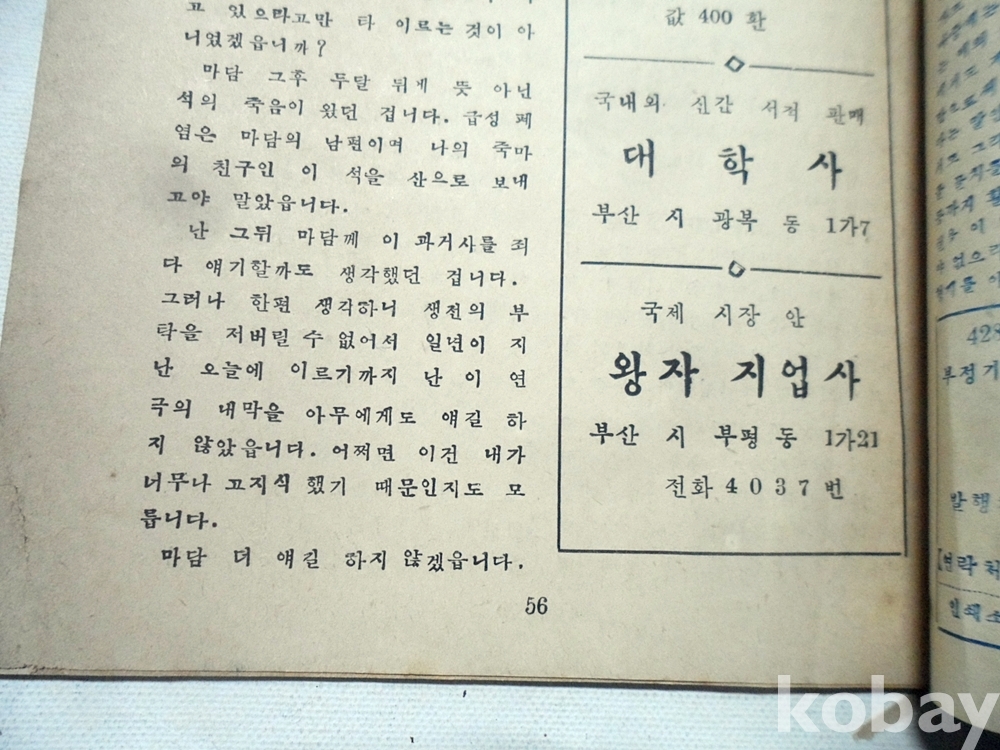 고 있으라고만 타 이르는 것이 아
니였겠읍니까?
마담 그후 두달 뒤게 뜻 아닌
석의 죽음이 왔던 겁니다. 급성 페
염은 마담의 남편이며 나의 죽마
의 친구인 이 석을 산으로 보내
고야 말았읍니다.
난 그뒤 마담께 이 과거사를 죄
다 얘기할까도 생각했던 겁니다.
그러나 한편 생각하니 생전의 부
탁을 저버릴 수 없어서 일년이 지
난 오늘에 이르기까지 난 이 연
극의 내막을 아무에게도 얘길 하
지 않았읍니다. 어쩌면 이건 내가
너무나 고지식했기 때문인지도 모
릅니다.
마담 더 얘길 하지 않겠읍니다.
56
값 400 환
국내외 신간 서적 판매
대 학 사
부산 시 광복 동 1가7
국제 시장 안
왕자 지업사
부산 시 부평 동 1가21
전화 4037번
부정기
발행
인쇄소
kobay